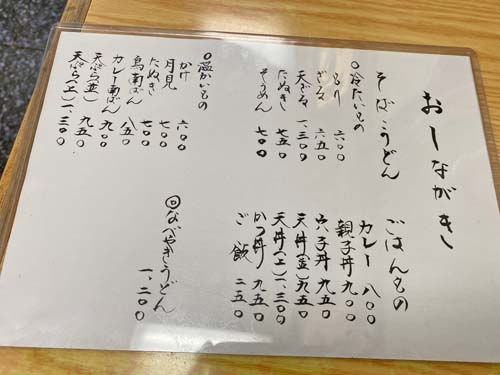 おしながき
そば・うどん
○冷たいもの
もり 六〇〇
ざる 六五〇
天ざる 一、三〇〇
たぬき 七五〇
そうめん 七〇〇
○温かいもの
かけ 六〇〇
月見 七〇〇
たぬき 七〇〇
鳥南ばん 八五〇
カレー南ばん 九〇〇
天ぷら(並) 九五〇
天ぷら(上) 一、三〇〇
ごはんもの
カレー 八〇〇
親子丼 九〇〇
穴子丼 九五〇
天丼(並) 九五〇
天丼(上) 一、三〇〇
かつ丼 九五〇
ご飯 二五〇
◎なべやきうどん
一、二〇〇